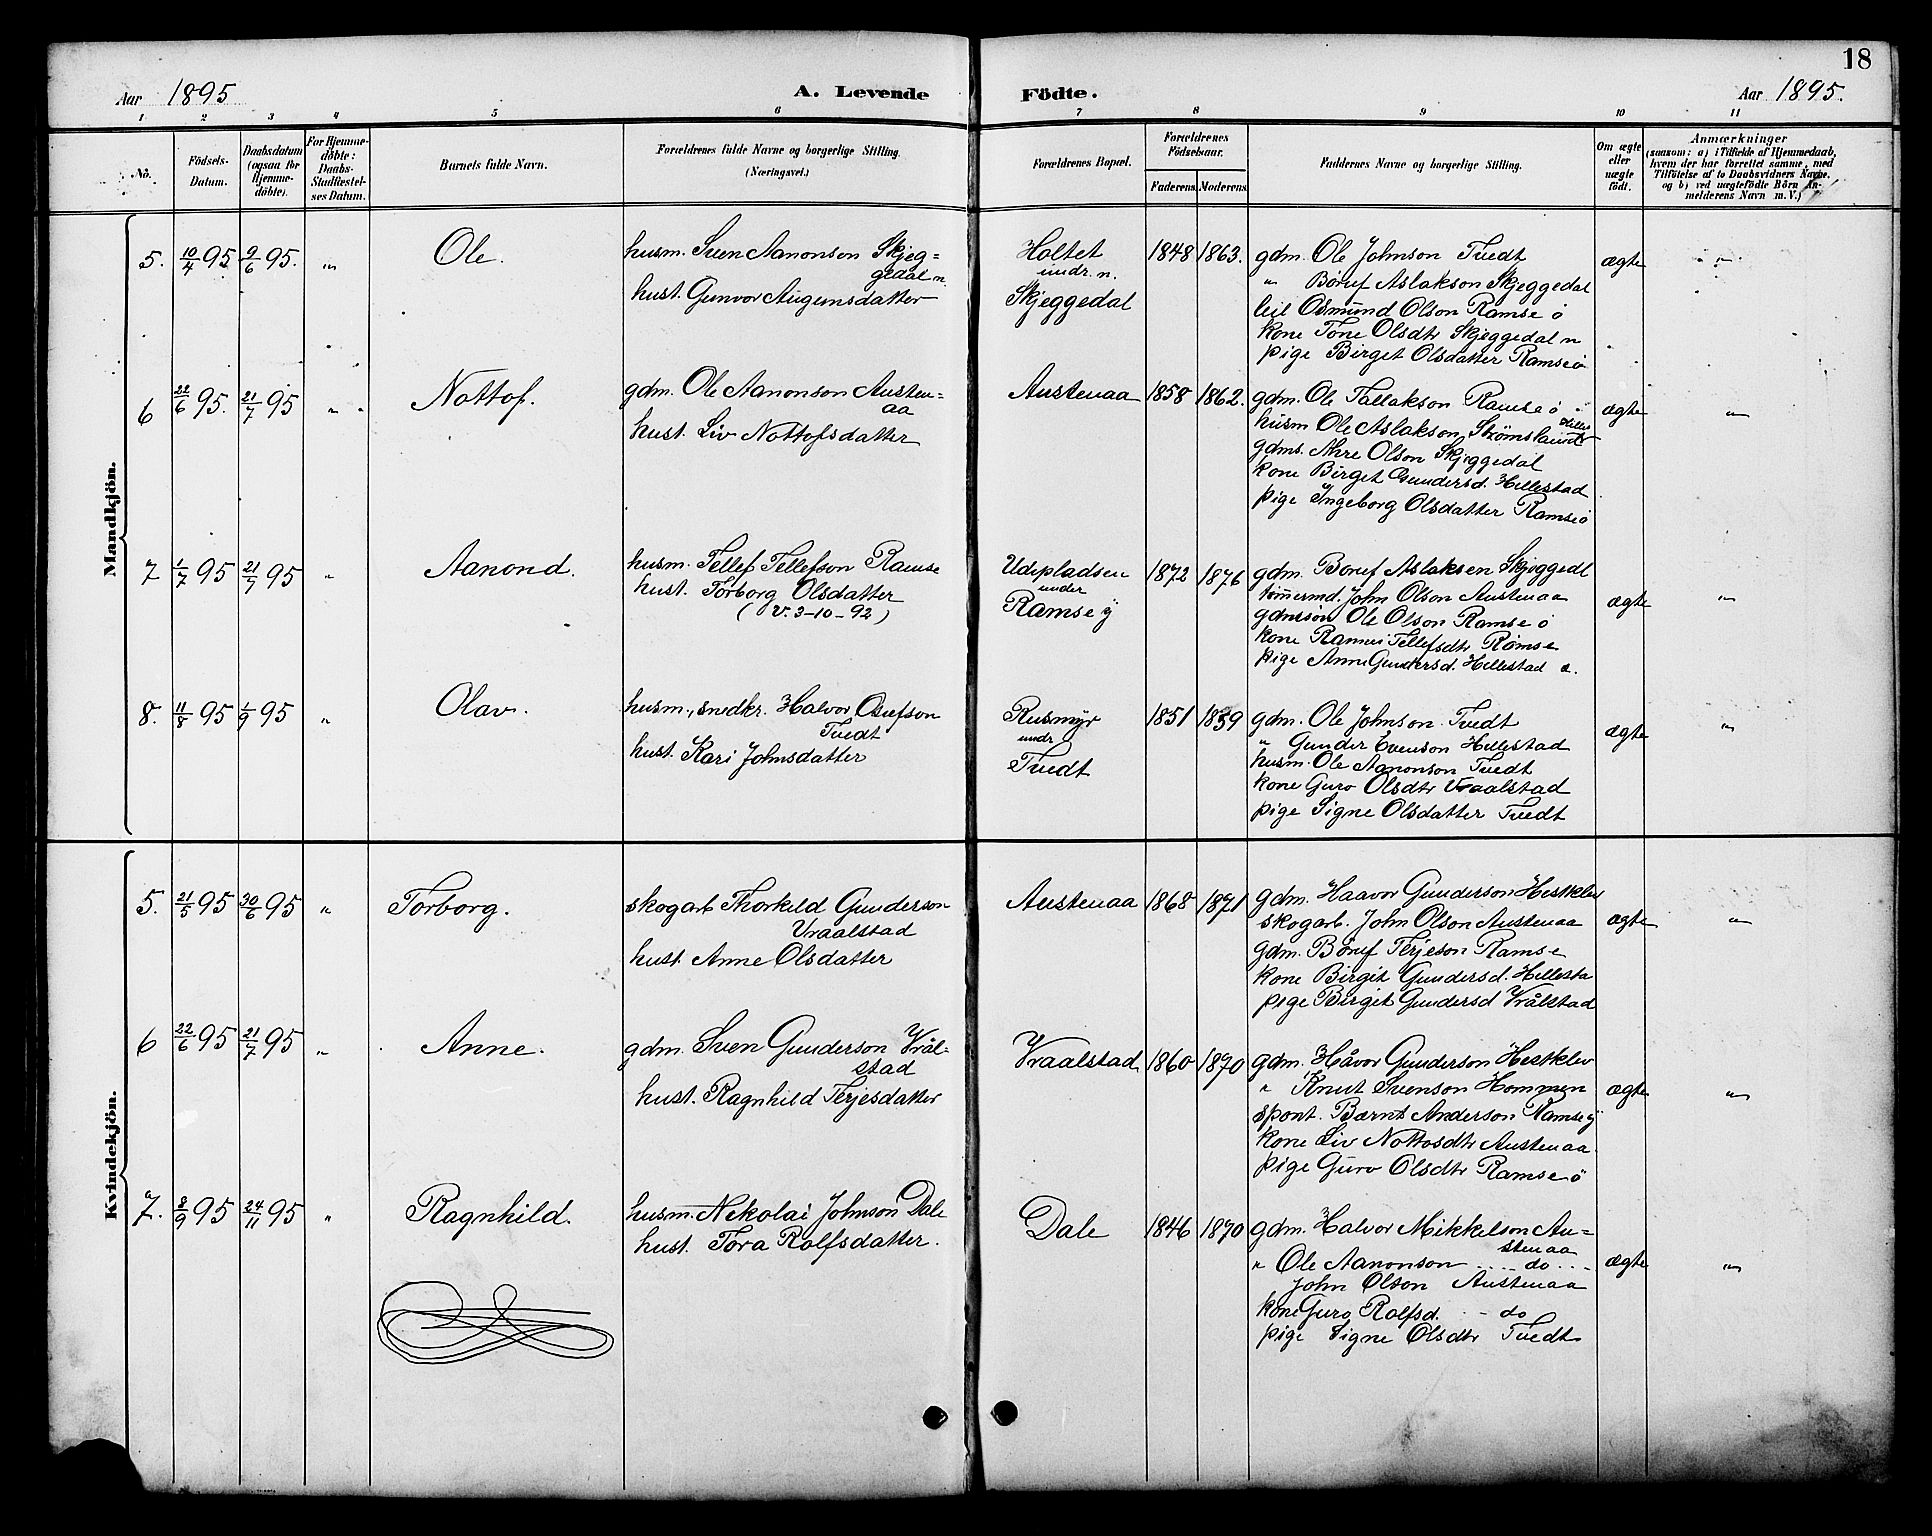 18
Aar 1895
A. Levende
Födte.
Aar 1895.
1 2 3 4 5 6 7 8 9 10 11
No.
Födsels-Datum.
Daabsdatum (ogsaa for Hjemme-döbte).
For Hjemme-döbte: Daabs-Stadfæstel-ses Datum.
Barnets fulde Navn.
Forældrenes fulde Navne og borgerlige Stilling.
(Næringsvei.)
Forældrenes Bopæl.
Forældrenes Födselsaar.
Faderens. Moderens.
Faddernes Navne og borgerlige Stilling.
Om ægte eller uægte födt.
Anmærkninger
(saasom: a) i Tilfælde af Hjemmedaab,
hvem der har forrettet samme, med
Tilföielse af to Daabsvidners Navne,
og b) ved uægtefödte Börn An-
melderens Navn m. V.)
Mandkjön.
5. 10/4 95 9/6 95. " Ole.
husm. Sven Aanonson Skjeg=
gedal n.
hust. Gunvor Augunsdatter
Holtet
undr. n.
Skjeggedal
1848 1863.
gdm. Ole Johnson Tvedt
" Boruf Aslakson Skjeggedal
leil Osmund Olson Ramse ö
kone Tone Olsdtr Skjeggedal n
pige Birget Olsdatter Ramseö
ægte
6 22/6 95. 21/7 95 " Nottof.
gdm. Ole Aanonson Austen=
aa
hust. Liv Nottofsdatter
Austenaa
1858 1862.
gdm. Ole Tallakson Ramse ö
husm Ole Aslakson,
gdms. Olson Skjeggedal
kone Birget Gundersd. Hillestad
pige Ingeborg Olsdatter Ramseö
ægte "
7 1/7 95 21/7 95 " Aanond.
husm. Tellef Tellefson Ramse
hust. Torborg Olsdatter
(v. 3-10-92)
Udspladsen
under
Ramse y
1872 1876
gdm. Boruf Aslaksen Skjeggedl
tömmermd. John Olson Austenaa
gdmsön Ole Olson Ramse ö
kone Rannei Tellefsdtr Ramse
pige Anne Gundersd. Hillestad
ægte "
8. 11/8 95 1/9 95 " Olav.
husm., snedkr. Halvor Osufson
Tvedt
hust. Kari Johnsdatter
Rusmyr
undr
Tvedt
1851 1859
gdm. Ole Johnson Tvedt
" Gunder Evenson Hillestad
husm. Ole Aanonson Tvedt
kone Guro Olsdtr Vraalstad
pige Signe Olsdatter Tvedt
ægte "
Kvindekjön.
5. 21/5 95 30/6 95 " Torborg.
skogarb Thorkild Gunderson
Vraalstad
hust. Anne Olsdatter
Austenaa
1868 1871
gdm. Haavor Gunderson Hestklev
skogarb. John Olson Austenaa
gdm. Boruf Terjeson Ramse
kone Birgit Gundersd. Hillesta
pige Birgit Gundersd Vrålstad
ægte "
6 22/6 95 21/7 95 " Anne.
gdm. Sven Gunderson Vrål=
stad
hust. Ragnhild Terjesdatter
Vraalstad
1860 1870
gdm. Håvor Gunderson Hestklev
" Knut Svenson Hommen
spont. Bærnt Anderson Ramse y
kone Liv Nottosdtr Austenaa
pige Guro Olsdtr Ramse ö
ægte "
7. 8/9 95 24/11 95 " Ragnhild.
husm. Nikolai Johnson Dale
hust. Tora Rolfsdatter.
Dale
1846 1870
gdm. Halvor Mikkelson Au=
stenaa
" Ole Aanonson .... do ...
John Olson Austenaa
kone Guro Rolfsd. - do
pige Signe Olsdtr Tvedt
ægte "